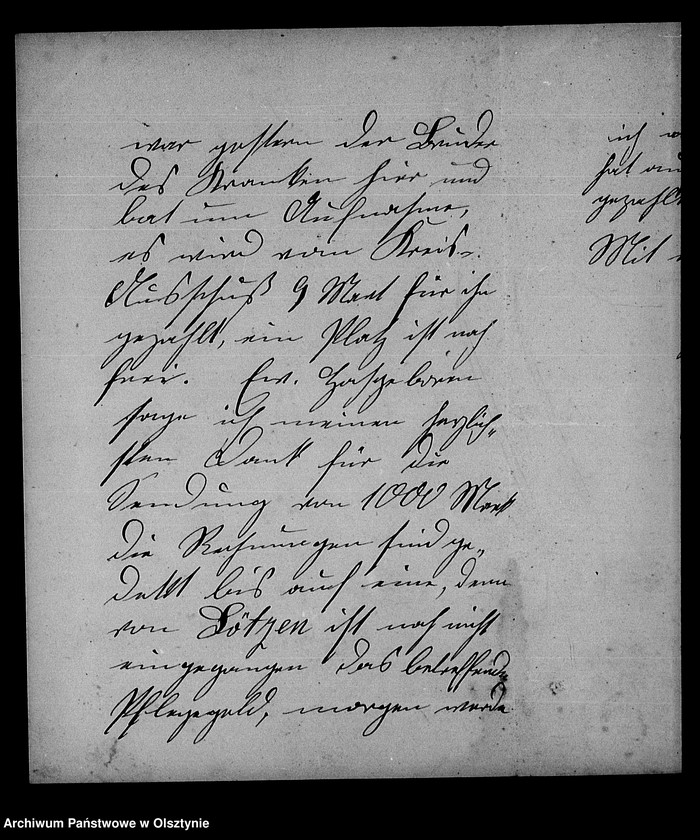 war gestern der Bruder
des Kranken hier und
bat um Aufnahme,
es wird vom Kreis-
Ausschuß 9 Mark für ihn
gezahlt, ein Platz ist noch
frei. Ew. Hochgeboren
sage ich meinen herzlich-
sten Dank für die
Sendung von 1000 Mark
die Rechnungen sind ge-
deckt bis auf eine, denn
von Lötzen ist noch nicht
eingegangen das betreffende
Pflegegeld, morgen werde
ich
hat
gezahlt
Mit
Archiwum Państwowe w Olsztynie